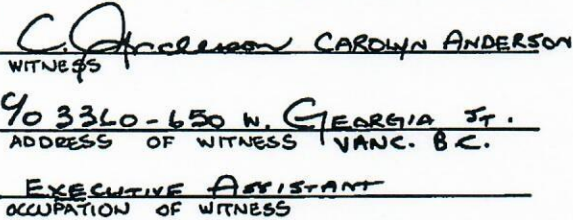 C. Anderson CAROLYN ANDERSON
WITNESS
c/o 3360-650 W. GEORGIA ST.
ADDRESS OF WITNESS VANC. B.C.
EXECUTIVE ASSISTANT
OCCUPATION OF WITNESS